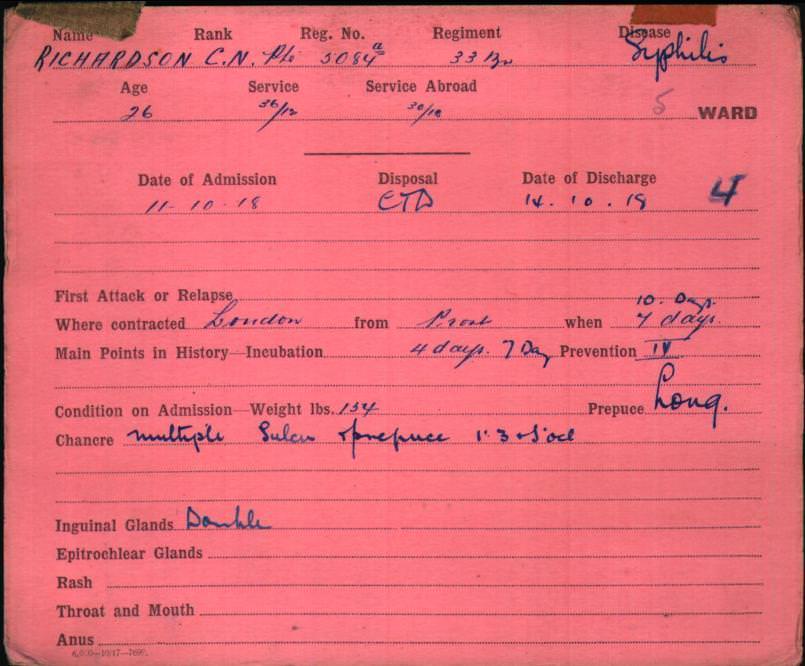 Name Rank Reg. No. Regiment Disease
RICHARDSON C.N. Pte 5084a 33 Bn Syphilis
Age Service Service Abroad
26 36/12 30/12 5 WARD
Date of Admission Disposal Date of Discharge 4
11-10-18 CTD 14.10.18
First Attack or Relapse 10. Days.
Where contracted London from Prost when 7 days.
Main Points in History—Incubation 4 days. 7 Day Prevention IV
Condition on Admission—Weight lbs. 154 Prepuce Long.
Chancre multiple Sulcus & prepuce 1. 3 & 5 oct
Inguinal Glands Double
Epitrochlear Glands
Rash
Throat and Mouth
Anus